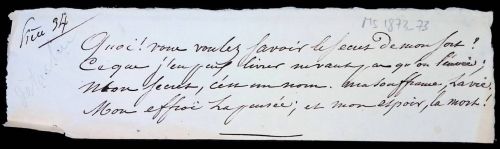 Pièce
MS 1873-73
Quoi! vous voulez savoir le secret de mon sort?
Ce que j'en puis livrer ne vaut pas qu'on l'envie;
Mon secret, c'est un nom. ma souffrance, la vie,
Mon effroi la pensée; et mon espoir, la mort!